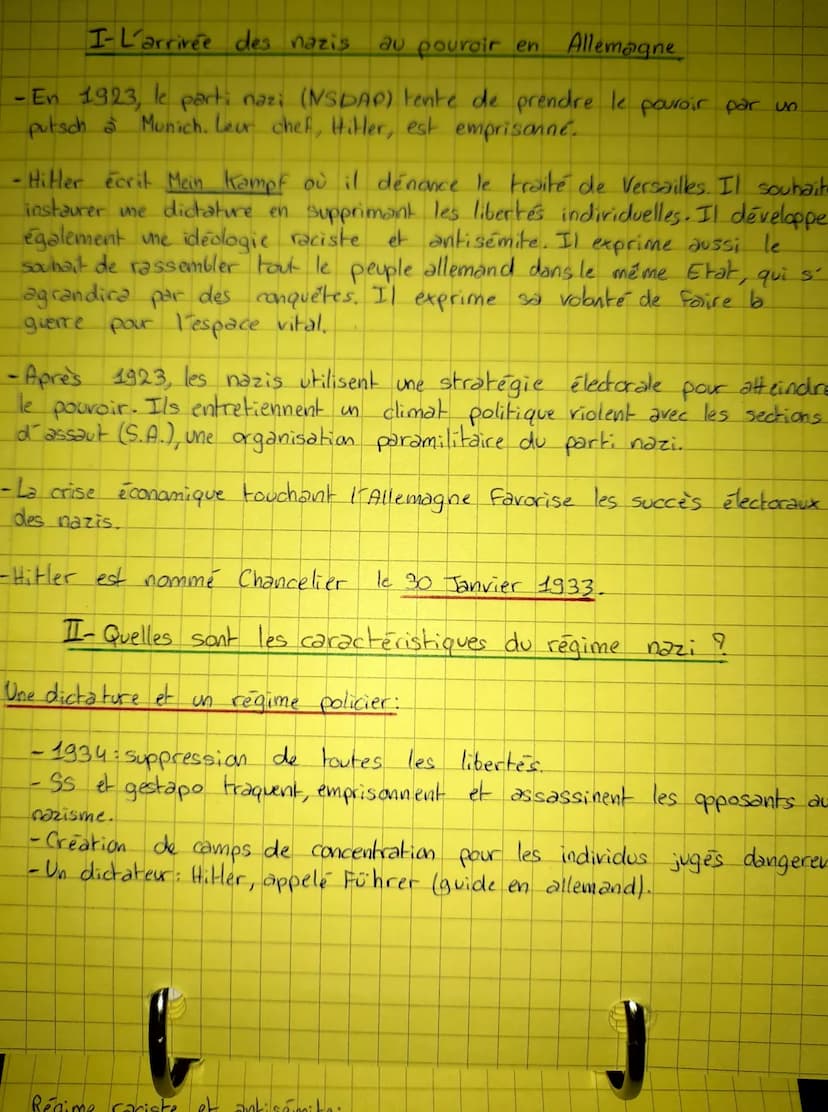 I-L'arrivée des nazis au pouvoir en Allemagne
- En 1923, le parti nazi (NSDAP) tente de prendre le pouvoir par un
putsch à Munich. Leur chef, Hitler, est emprisonné.
- Hitler écrit Mein Kampf où il dénonce le traité de Versailles. Il souhait
instaurer une dictature en supprimant les libertés individuelles. Il développe
également une idéologie raciste et antisémite. Il exprime aussi le
souhait de rassembler tout le peuple allemand dans le même Etat, qui s'
agrandira par des conquêtes. Il exprime sa volonté de faire la
guerre pour l'espace vital.
- Après 1923, les nazis utilisent une stratégie électorale pour atteindre
le pouvoir. Ils entretiennent un climat politique violent avec les sections
d'assaut (S.A.), une organisation paramilitaire du parti nazi.
- La crise économique touchant l'Allemagne favorise les succès électoraux
des nazis.
- Hitler est nommé Chancelier le 30 Janvier 1933.
II- Quelles sont les caractéristiques du régime nazi ?
Une dictature et un régime policier :
- 1934 : suppression de toutes les libertés.
- SS et gestapo traquent, emprisonnent et assassinent les opposants au
nazisme.
- Création de camps de concentration pour les individus jugés dangereu
- Un dictateur : Hitler, appelé Führer (guide en allemand).
Régime raciste et antisémite :